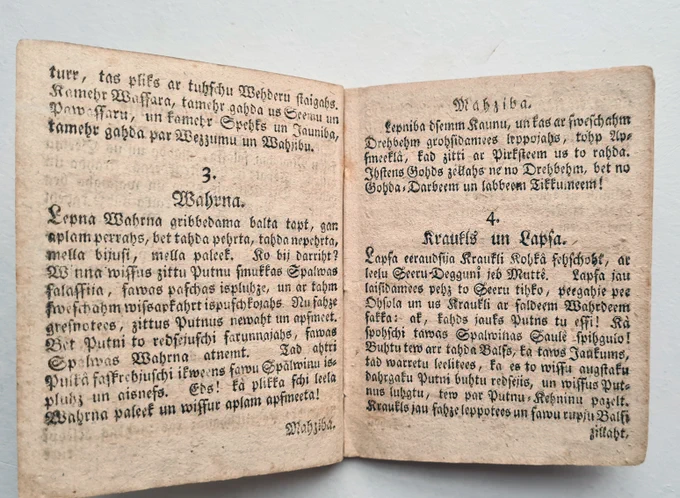 turr, tas pliks ar tuhſchu Wehderu ſtaigahs.
Kamehr Waſſara, tamehr gahda us Seemu un
Pawaſſaru, un kamehr Spehks un Jauniba,
tamehr gahda par Wezzumu un Wahjibu.
3.
Wahrna.
Lepna Wahrna gribbedama balta tapt, gan
aplam perrahs, bet tahda pehrta, tahda nepehrta,
mella bijuſi, mella paleek. Ko bij darriht?
Winna wiſſus zittu Putnu ſmukkas Spalwas
ſalaſſija, ſawas paſchas iſpluhze, un ar tahm
ſweſchahm wiſſapkahrt iſpuſchkojahs. Nu ſahze
greſnotees, zittus Putnus newaht un apſmeet.
Bet Putni to redſejuſchi ſarunnajahs, ſawas
Spalwas Wahrna atnemt. Tad ahtri
Pulkâ ſaſkrehjuſchi ikweens ſawu Spalwinu iſ-
pluhz un aisneſs. Eds! kà plikka ſchi leela
Wahrna paleek un wiſſur aplam apſmeeta!
Mahziba.
Mahziba.
Lepniba dſemm Kaunu, un kas ar ſweſchahm
Drehbehm grohſidamees leppojahs, tohp Ap-
ſmeeklâ, kad zitti ar Pirkſteem us to rahda.
Ihſtens Gohds zellahs ne no Drehbehm, bet no
Gohda-Darbeem un labbeem Tikkumeem!
4.
Kraukls un Lapſa.
Lapſa eeraudſija Kraukli Kohkâ ſehſchoht, ar
leelu Seeru-Deggunî jeb Muttê. Lapſa jau
laiſidamees pehz to Seeru tihko, peegahje pee
Ohſola un us Kraukli ar ſaldeem Wahrdeem
ſakka: ak, kahds jauks Putns tu eſſi! Kà
ſpohſchi tawas Spalwinas Saulê ſpihgulo!
Buhtu tew arr tahda Balſs, kà taws Jaukums,
tad warretu leelitees, ka es to wiſſu augſtaku
dahrgaku Putni buhtu redſejis, un wiſſus Put-
nus luhgtu, tew par Putnu-Kehninu pazelt.
Kraukls jau ſahze leppotees un ſawu rupju Balſi
zillaht,